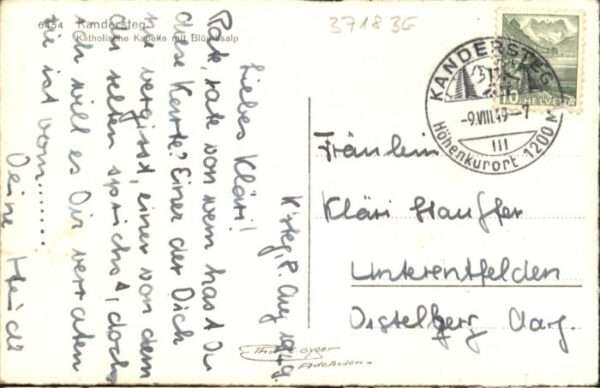 6454 Kandersteg
Katholische Kapelle mit Blümlisalp
37183G
KANDERSTEG
-9.VIII.49-7
III
Höhenkurort 1200 M
10 HELVETIA
K'steg, 8. Aug 1949.
Liebes Kläri!
Rate rate von wem hast Du
diese Karte? Einer der Dich
nie vergisst, einer von dem
Du selten sprichst, doch
ich will es Dir verraten
sie ist vom.......
Deine Heidi
Fräulein
Kläri Stauffer
Unterentfelden
Distelberg Aarg.